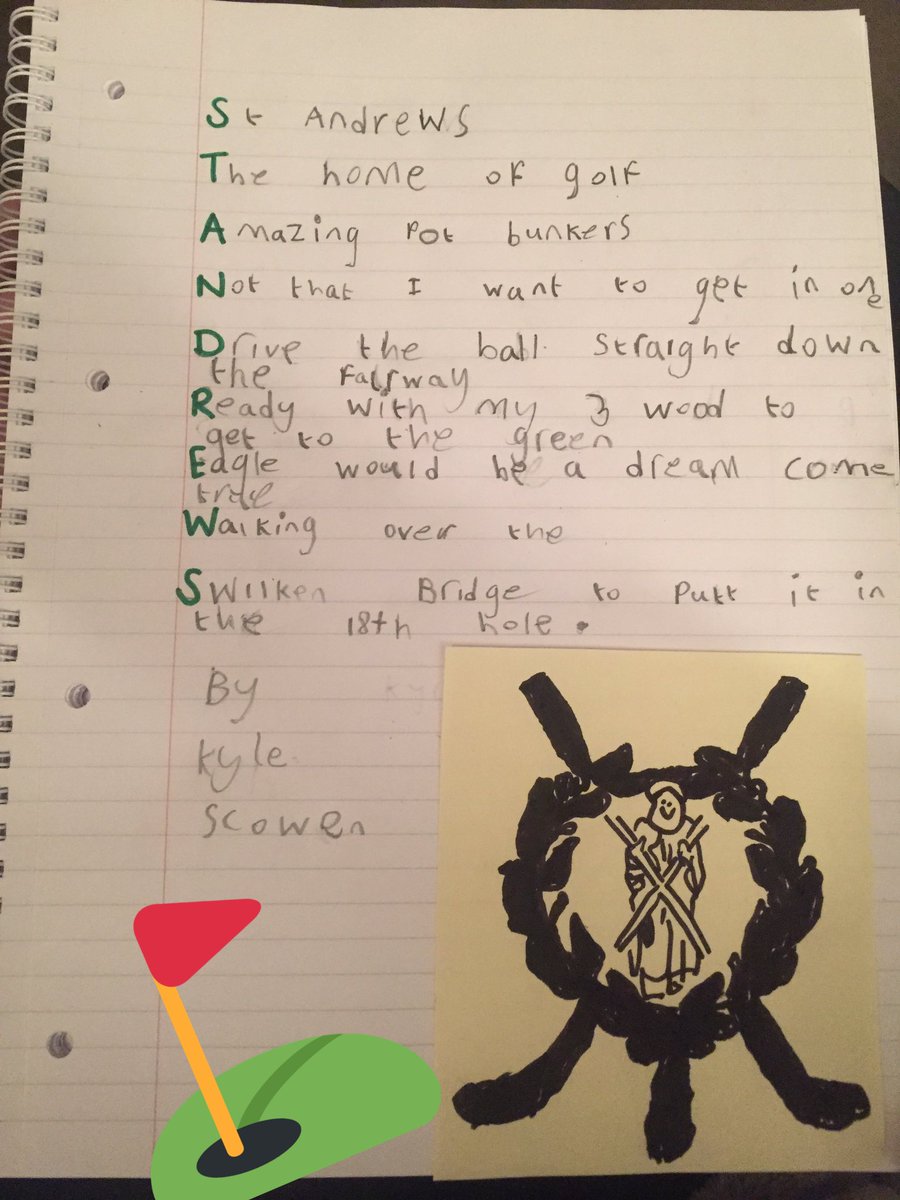 St Andrews
The home of golf
Amazing pot bunkers
Not that I want to get in one
Drive the ball straight down
the fairway
Ready with my 3 wood to
get to the green
Eagle would be a dream come
true
Walking over the
Swilken Bridge to putt it in
the 18th hole.
By
Kyle
Scowen